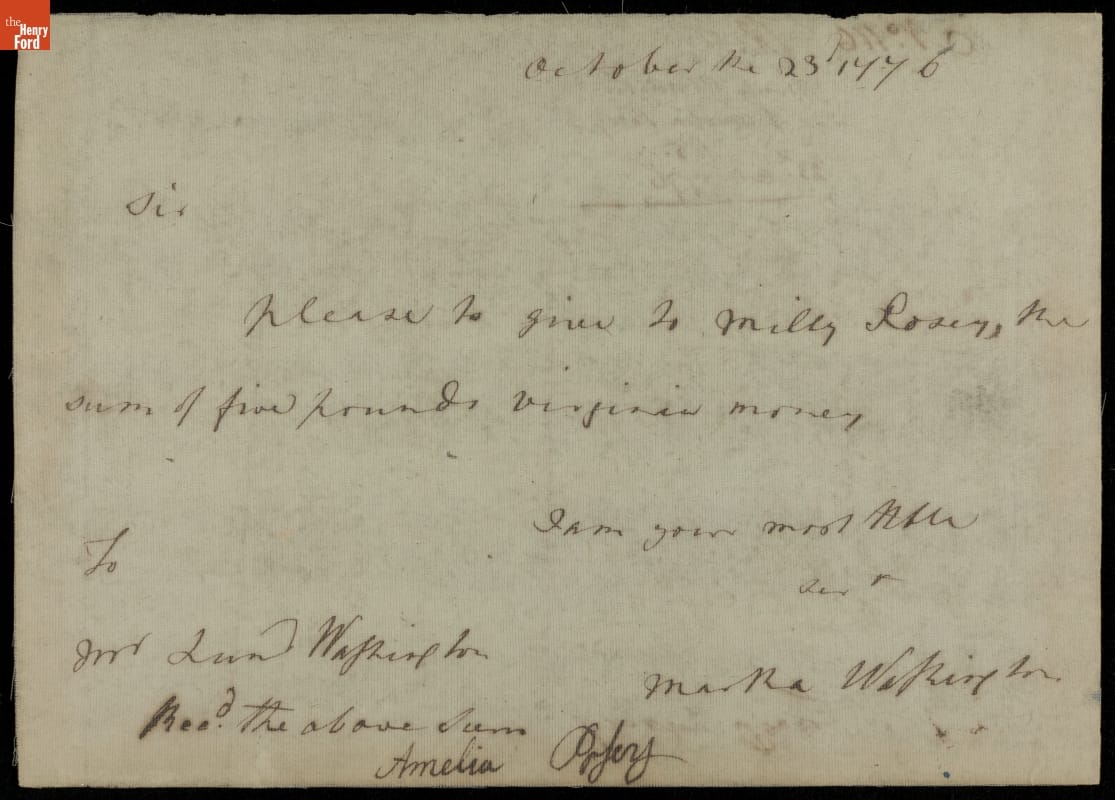 the
Henry
Ford
October the 23d 1776
Sir
please to give to Milly Posey, the
sum of five pounds virginia money
I am your most Hble
sert
To
Mr Lund Washington
Martha Washington
Recd. the above Sum
Amelia Posey